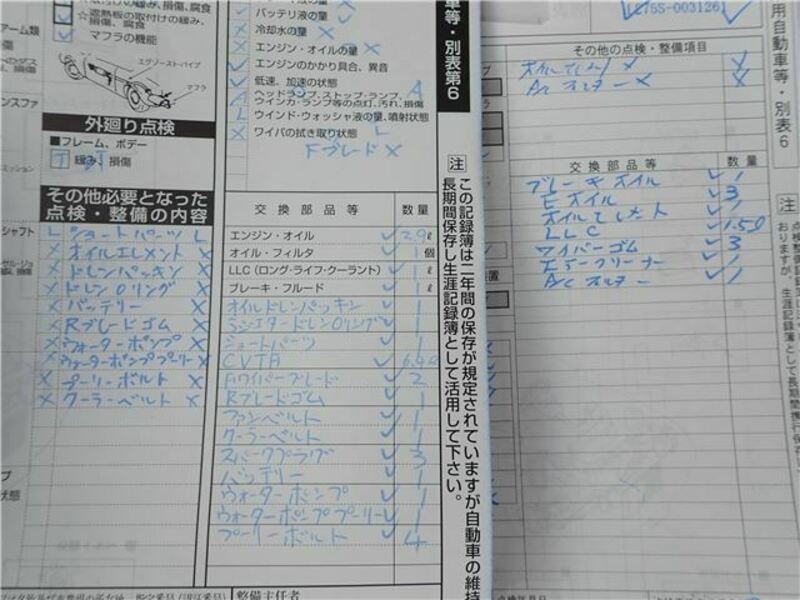 ☆遮熱板の取付けの緩み、
損傷、腐食
マフラの機能
エグゾースト・パイプ
マフラ
外廻り点検
■フレーム、ボデー
緩み、損傷
その他必要となった
点検・整備の内容
L ショートパーツ L
X オイルエレメント X
X ドレンパッキン X
X ドレンOリング X
X バッテリー X
X Rブレードゴム X
X ウォーターポンプ X
X ウォーターポンププーリー X
X プーリーボルト X
X クーラーベルト X
バッテリ液の量
冷却水の量 X
エンジン・オイルの量 X
エンジンのかかり具合、異音
低速、加速の状態
A ヘッドランプ、ストップ・ランプ、 A
ウインカ・ランプ等の点灯、汚れ、損傷
L ウインド・ウォッシャ液の量、噴射状態 L
X ワイパの拭き取り状態
Fブレード X
交換部品等 数量
エンジン・オイル 2.9 ℓ
オイル・フィルタ 1 個
LLC(ロング・ライフ・クーラント) 1 ℓ
ブレーキ・フルード 1 ℓ
オイルドレンパッキン 1
ラジエタードレンOリング 1
ショートパーツ 1
CVTF
Fワイパーブレード 2
Rブレードゴム 1
ファンベルト 1
クーラーベルト 1
スパークプラグ 3
バッテリー 1
ウォーターポンプ 1
ウォーターポンププーリー 1
プーリーボルト 4
整備主任者
車等・別表第6
注
この記録簿は二年間の保存が規定されていますが自動車の維持
長期間保存し生涯記録簿として活用して下さい。
L275S-003126
その他の点検・整備項目
オイルエレメント X
ACフィルター X
交換部品等 数量
ブレーキオイル 1
Eオイル 3
オイルエレメント 1
LLC 1.50
ワイパーゴム 3
エアークリーナー 1
ACフィルター 1
用自動車等・別表6
注